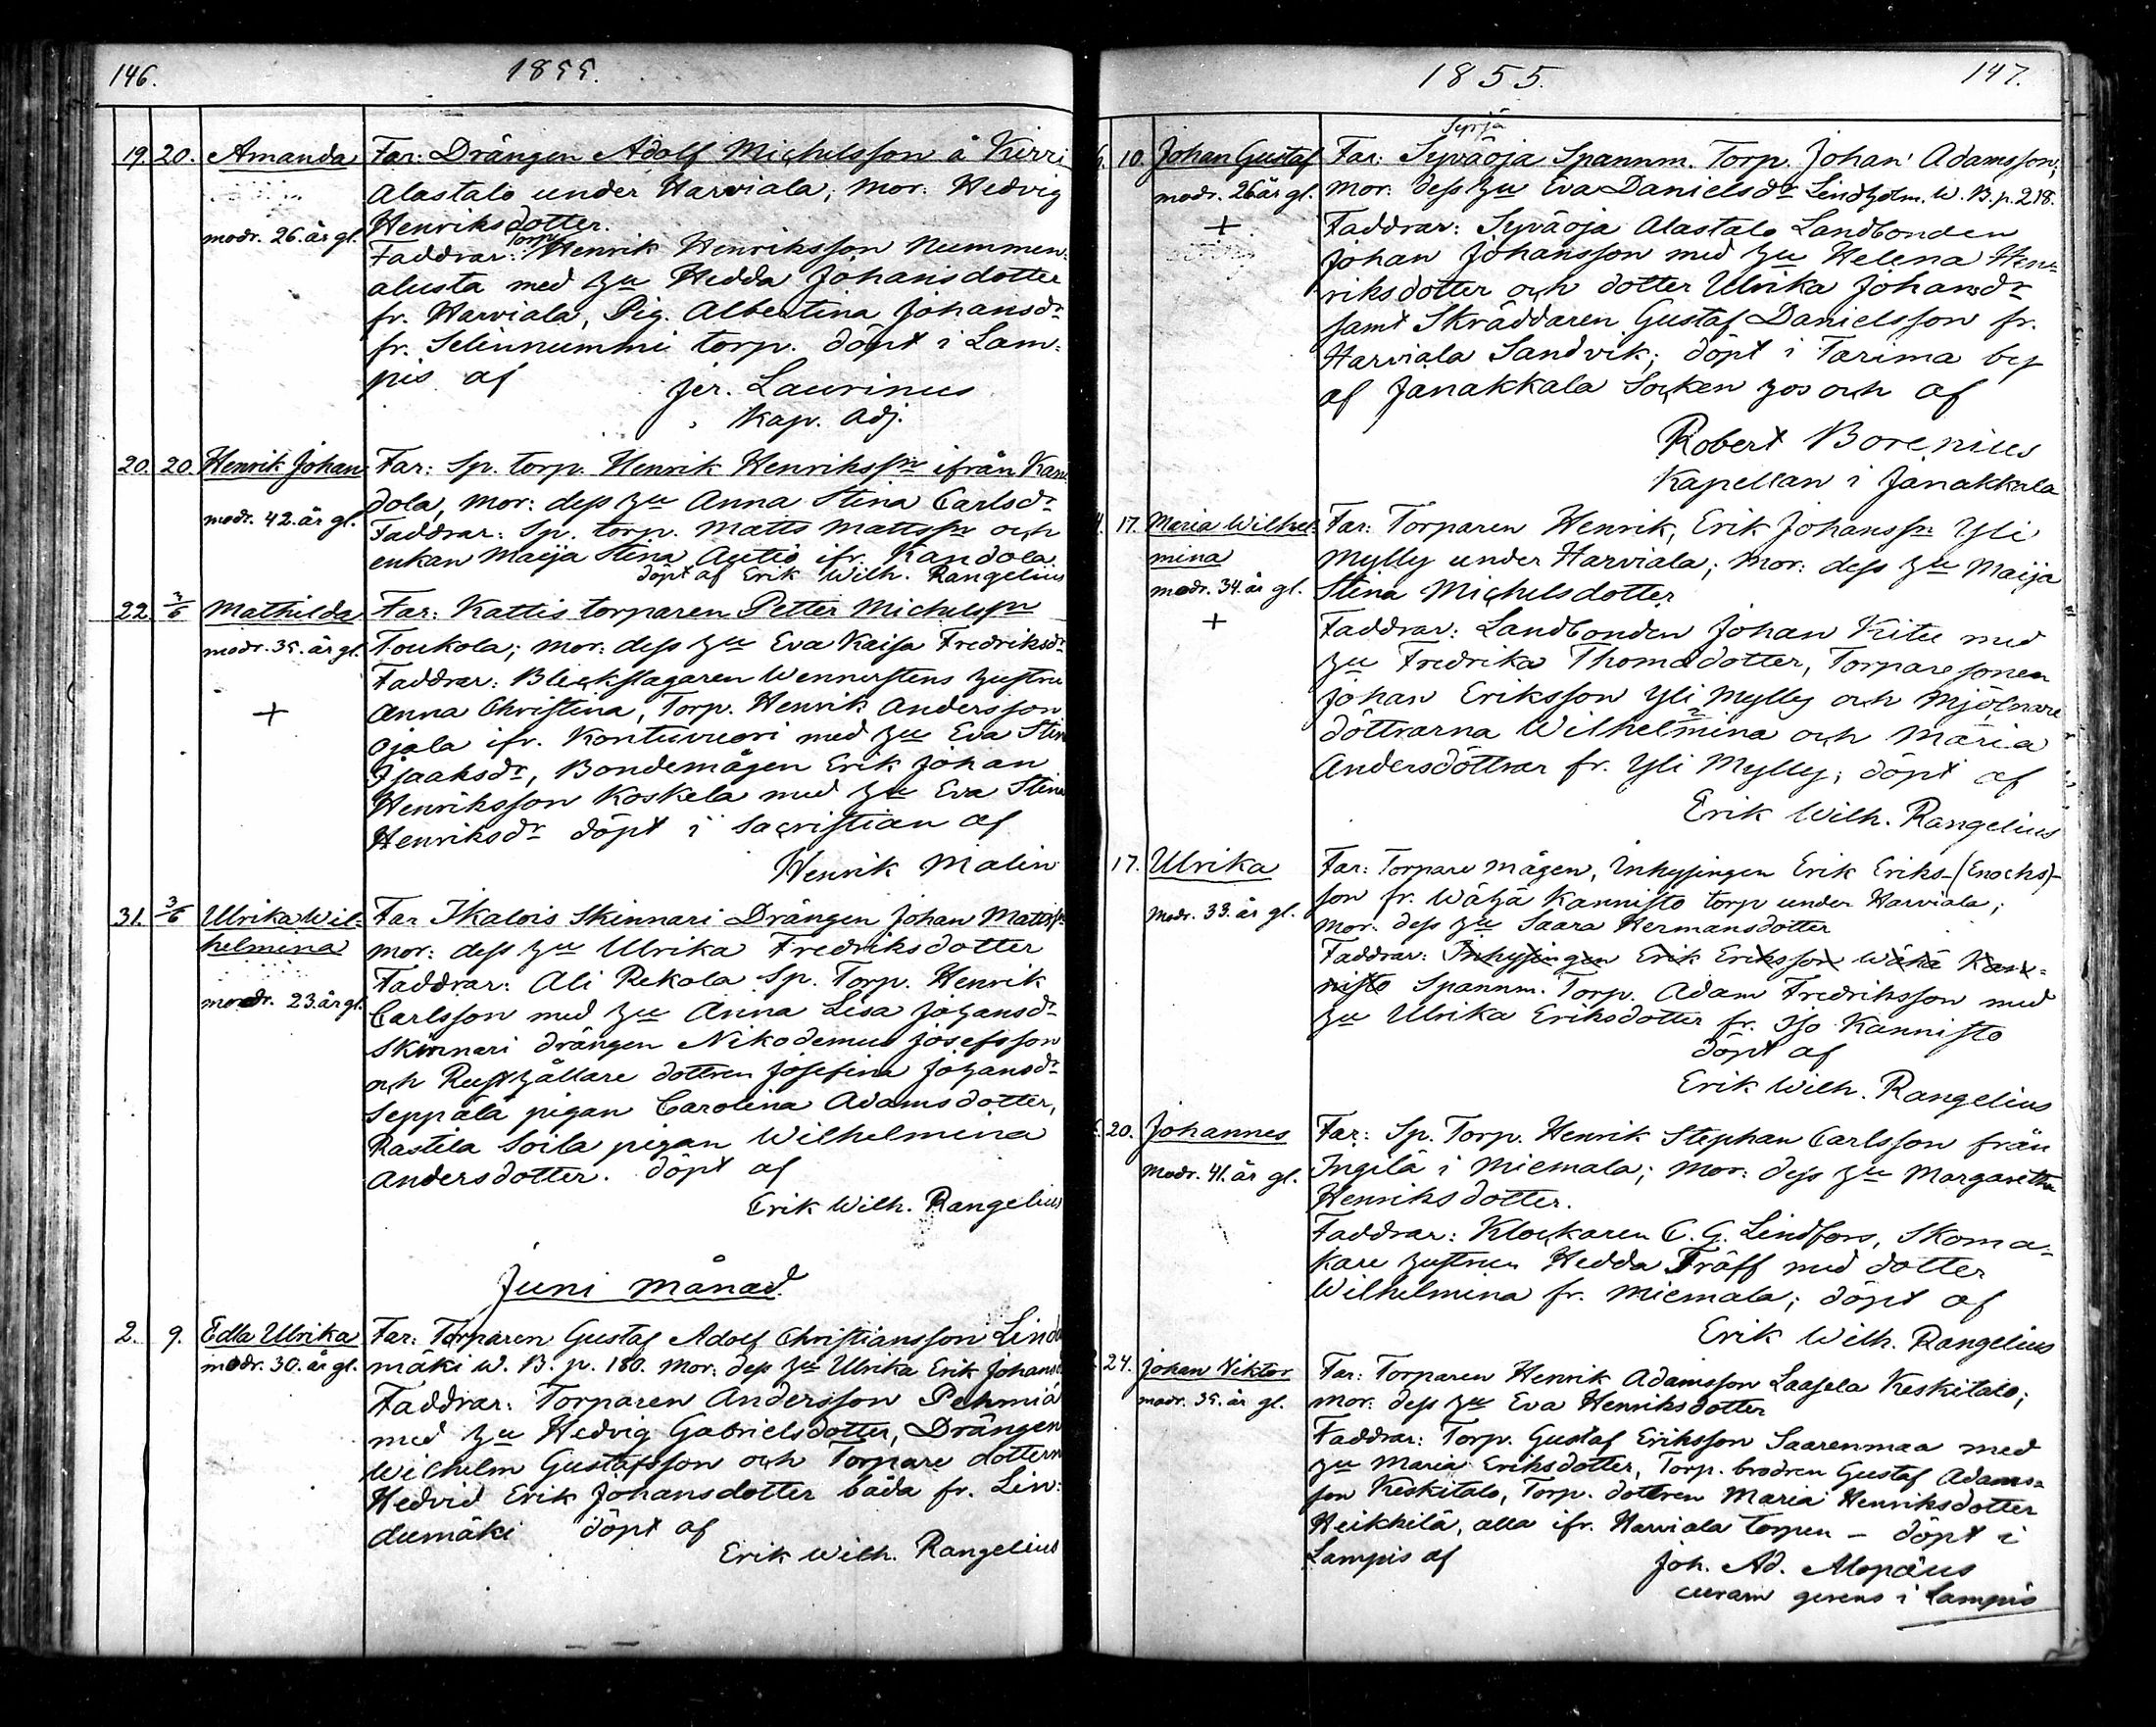 146. 1855.
19. 20. Amanda Far: Drängen Adolf Michelsson å Kirri
Alastalo under Harviala; Mor: Hedvig
Henriksdotter.
modr. 26. år gl.
Faddrar: Torp. Henrik Henriksson Nummen-
alusta med hu Hedda Johansdotter
fr. Harviala, Pig. Albertina Johansdr
fr. Selinnummi torp. döpt i Lam-
pis af Jer. Laurinus
Kap. Adj.
20. 20. Henrik Johan Far: Sp. torp. Henrik Henrikssn ifrån Kan
dola, Mor: dess hu Anna Stina Carlsdr
modr. 42. år gl.
Faddrar: Sp. torp. Matts Mattssn och
enkan Maija Stina Autio ifr. Kandola
döpt af Erik Wilh. Rangelius
22. 3/6 Mathilda Far: Kattis torparen Petter Michelssn
modr. 35. år gl. Toukola; Mor: dess hu Eva Kaisa Fredriksdr
Faddrar: Bleckslagaren Wennerstens hustru
+ Anna Christina, Torp. Henrik Andersson
Ojala ifr. Kontuvuori med hu Eva Stin
Isaaksdr, Bondemågen Erik Johan
Henriksson Koskela med hu Eva Stina
Henriksdr döpt i Sacristian af
Henrik Malin
31. 3/6 Ulrika Wil- Far Ikalois Skinnari Drängen Johan Mattssn
helmina mor: dess hu Ulrika Fredriksdotter
Faddrar: Ali Rekola Sp. Torp. Henrik
modr. 23. år gl. Carlsson med hu Anna Lisa Johansdr
Skinnari drängen Nikodemus Josefsson
och Rusthållare dottren Josefina Johansdr
Seppälä pigan Carolina Adamsdotter,
Rastila Soila pigan Wilhelmina
Andersdotter. döpt af
Erik Wilh. Rangelius
Juni månad.
2. 9. Edla Ulrika Far: Torparen Gustaf Adolf Christiansson Lindu
modr. 30. år gl. mäki W. B. p. 180. Mor: dess hu Ulrika Erik Johansd
Faddrar: Torparen Andersson Pehmiä
med hu Hedvig Gabrielsdotter, Drängen
Wilhelm Gustafsson och Torpare dottern
Hedvid Erik Johansdotter båda fr. Lin-
dumäki döpt af
Erik Wilh. Rangelius
1855. 147.
Syrjä
10. Johan Gustaf Far: Syväoja Spannm. Torp. Johan Adamsson;
modr. 26 år gl. Mor: dess hu Eva Danielsdr Lindholm. W. B. p. 218.
+ Faddrar: Syväoja Alastalo Landbonden
Johan Johansson med hu Helena Hen-
riksdotter och dotter Ulrika Johansdr
samt Skräddaren Gustaf Danielsson fr.
Harviala Sandvik; döpt i Tarima by
af Janakkala Socken hos och af
Robert Borenius
Kapellan i Janakkala
17. Maria Wilhel- Far: Torparen Henrik, Erik Johanssn Yli
mina Mylly under Harviala; Mor: dess hu Maija
modr. 34. år gl. Stina Michelsdotter
+ Faddrar: Landbonden Johan Kitu med
hu Fredrika Thomadotter, Torparesonen
Johan Eriksson Yli Mylly och Mjölnare
döttrarna Wilhelmina och Maria
Andersdöttrar fr. Yli Mylly; döpt af
Erik Wilh. Rangelius
17. Ulrika Far: Torpare mågen, Inhysingen Erik Eriks-(Enochs)-
son fr. Wähä Kannisto torp under Harviala;
Modr. 33. år gl. Mor: dess hu Saara Hermansdotter
Faddrar: Inhysingen Erik Eriksson Wähä Kan-
nisto Spannm. Torp. Adam Fredriksson med
hu Ulrika Eriksdotter fr. Iso Kannisto
döpt af
Erik Wilh. Rangelius
20. Johannes Far: Sp. Torp. Henrik Stephan Carlsson från
Modr. 41. år gl. Ingilä i Miemala; Mor: dess hu Margaretha
Henriksdotter.
Faddrar: Klockaren C. G. Lindfors, Skoma-
kare hustrun Hedda Träff med dotter
Wilhelmina fr. Miemala; döpt af
Erik Wilh. Rangelius
24. Johan Viktor Far: Torparen Henrik Adamsson Laasela Keskitalo;
modr. 35. år gl. Mor: dess hu Eva Henriksdotter
Faddrar: Torp. Gustaf Eriksson Saarenmaa med
hu Maria Eriksdotter, Torp. brodren Gustaf Adams-
son Keskitalo, Torp. dottren Maria Henriksdotter
Heikkilä, alla ifr. Harviala torpen - döpt i
Lampis af Joh. Ad. Alopæus
curam gerens i Lampis